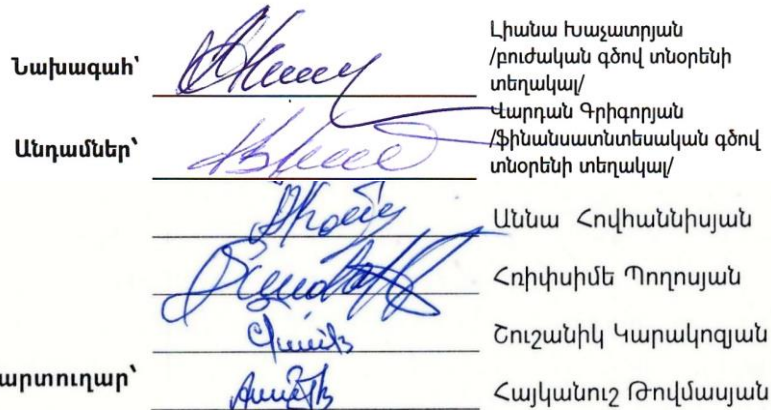 Նախագահ՝
Լիանա Խաչատրյան
/բուժական գծով տնօրենի
տեղակալ/
Անդամներ՝
Վարդան Գրիգորյան
/ֆինանսատնտեսական գծով
տնօրենի տեղակալ/
Աննա Հովհաննիսյան
Հռիփսիմե Պողոսյան
Շուշանիկ Կարակոզյան
արտուղար՝
Հայկանուշ Թովմասյան